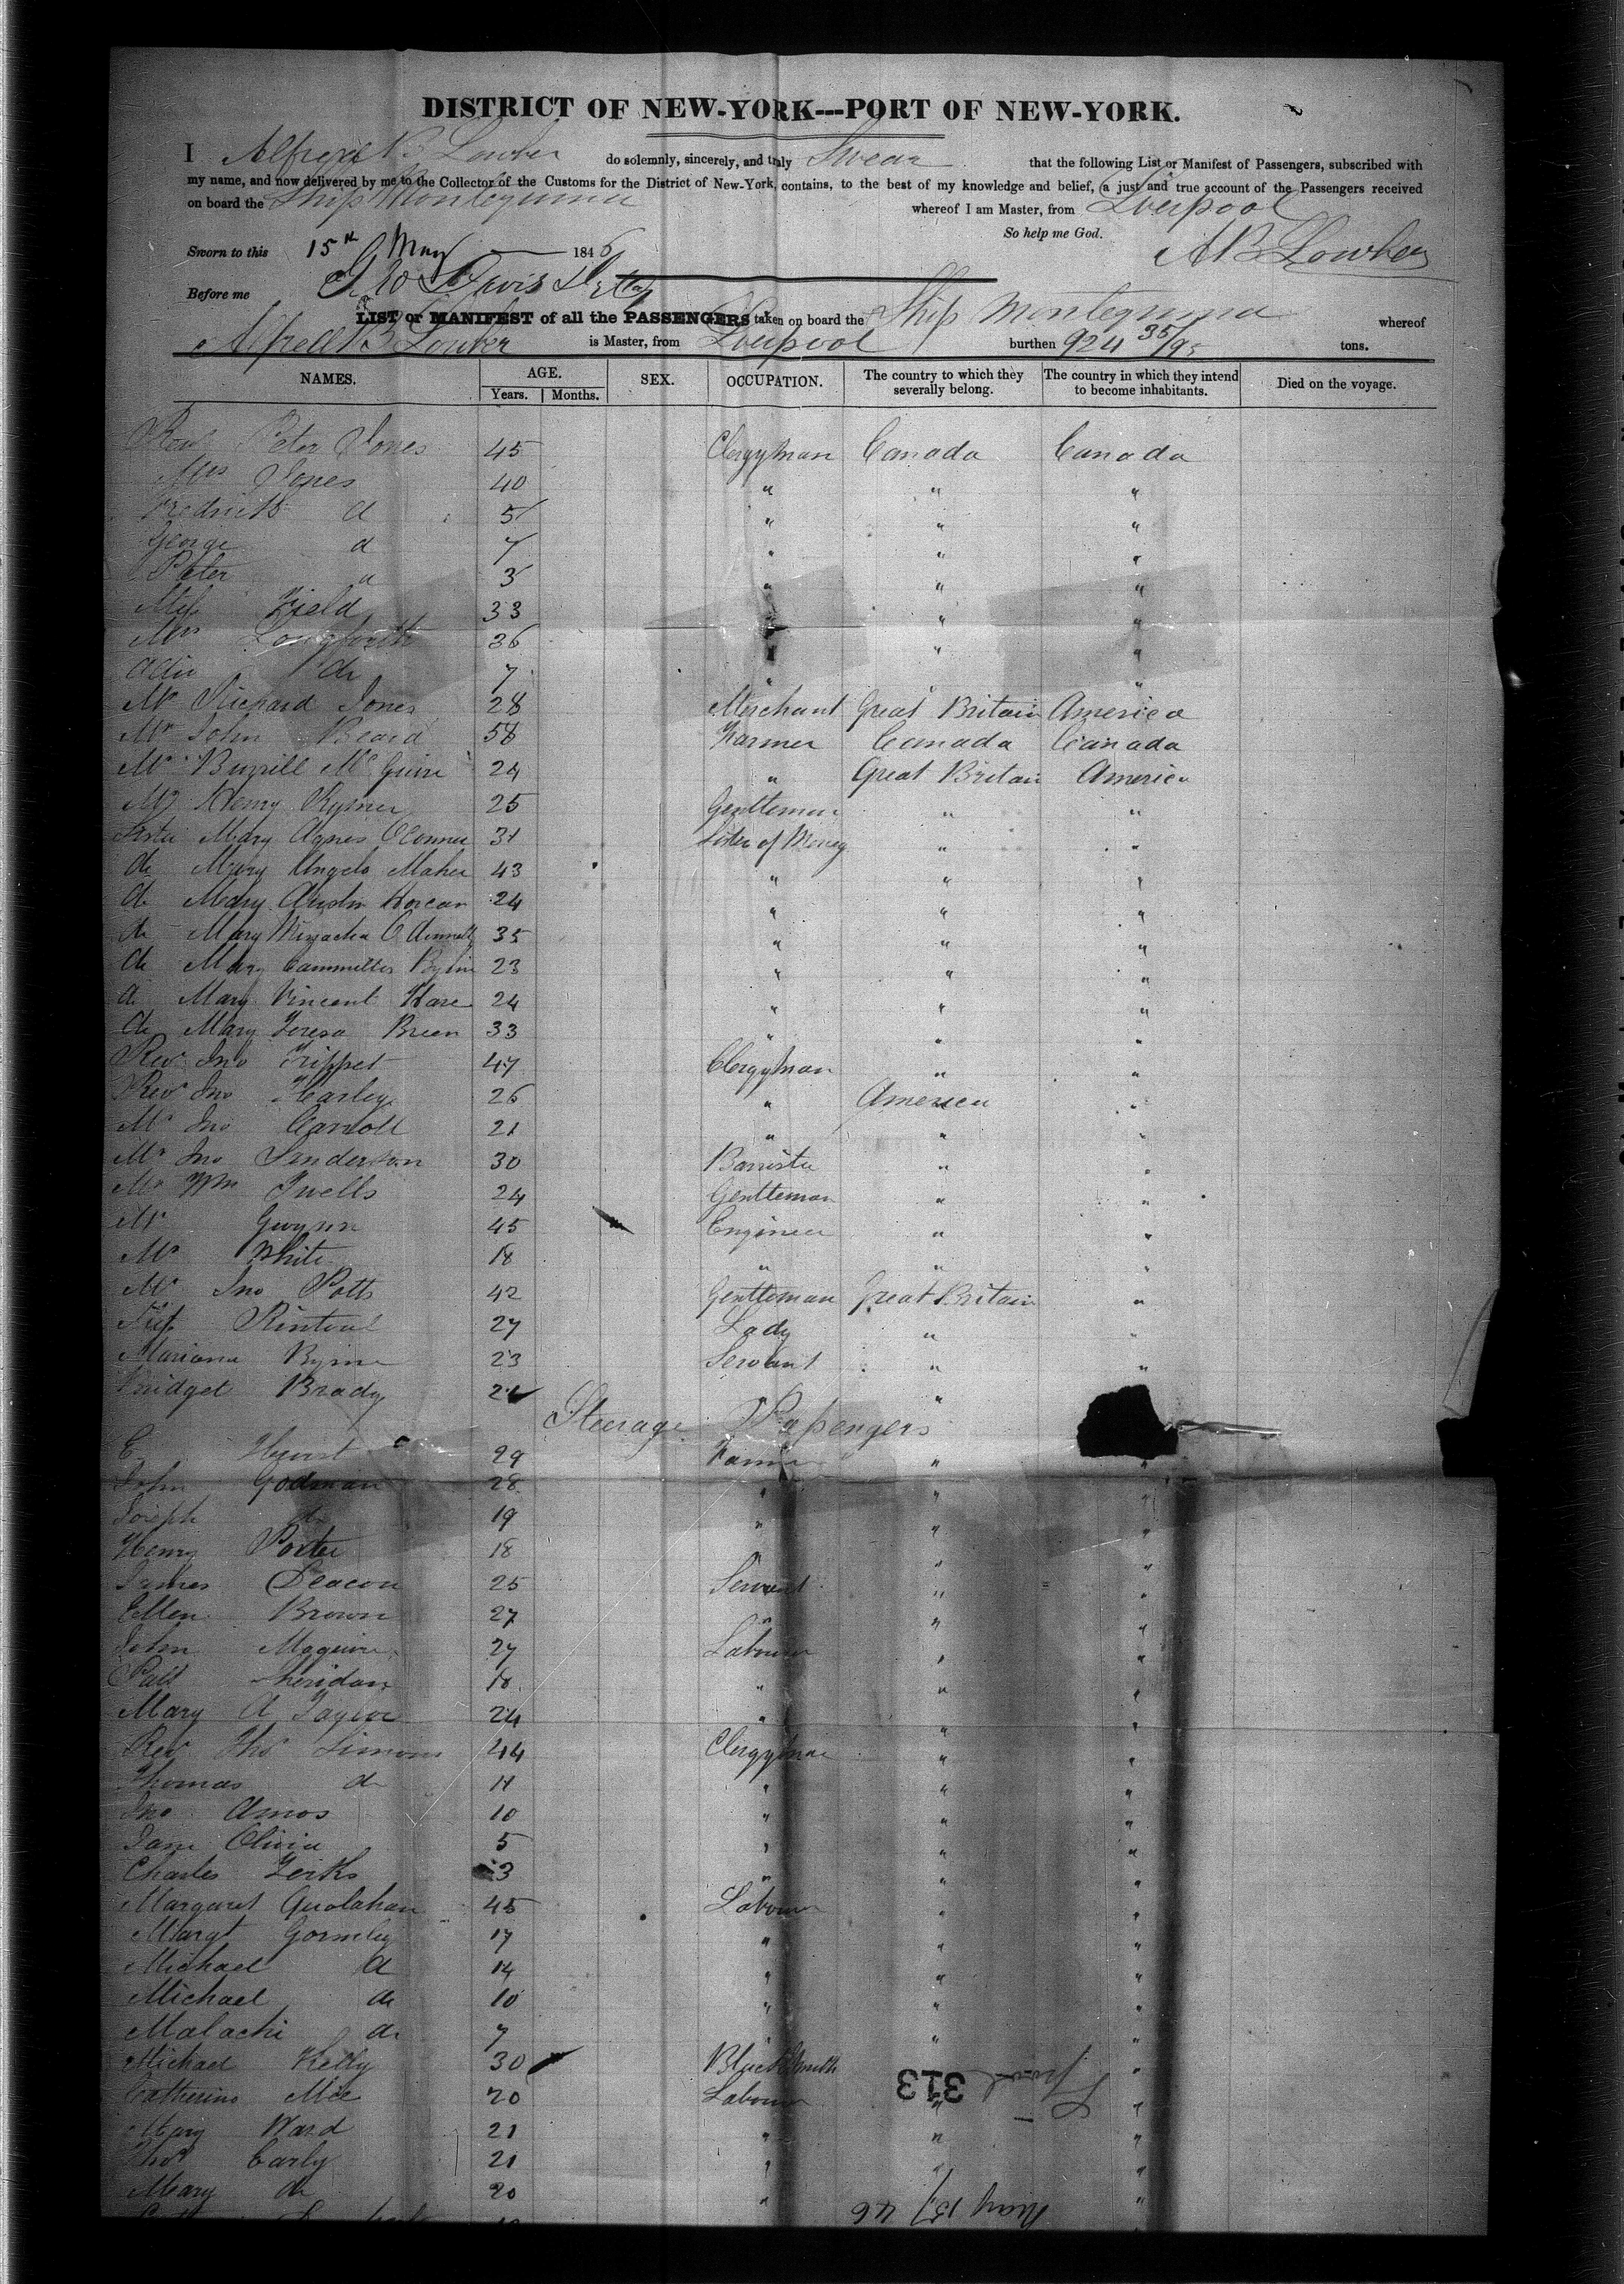 DISTRICT OF NEW-YORK---PORT OF NEW-YORK.
I Alfred B Lowber do solemnly, sincerely, and truly Swear that the following List or Manifest of Passengers, subscribed with
my name, and now delivered by me to the Collector of the Customs for the District of New-York, contains, to the best of my knowledge and belief, a just and true account of the Passengers received
on board the Ship Montezuma whereof I am Master, from Liverpool
So help me God.
Sworn to this 15th May 1846 AB Lowber
Before me
LIST or MANIFEST of all the PASSENGERS taken on board the Ship Montezuma whereof
Alfred B Lowber is Master, from Liverpool burthen 924 35/95 tons.
NAMES. AGE. Years. Months. SEX. OCCUPATION. The country to which they severally belong. The country in which they intend to become inhabitants. Died on the voyage.
Revd Peter Jones 45 Clergyman Canada Canada
Mrs Jones 40 " " "
Fredrick d 5 " " "
George d 7 " " "
Peter d 3 " " "
Miss Field 33 " " "
Mrs Longforth 36 " " "
do 7 " " "
Mr Richard Jones 28 Merchant Great Britain America
Mr John Beard 58 Farmer Canada Canada
Mr McGuire 24 " Great Britain America
Mr Henry Rymer 25 Gentleman " "
Sister Mary Agnes OConner 31 Sister of Mercy " "
do Mary Angelo Maher 43 " " "
do Mary Austin Horean 24 " " "
do Mary 35 " " "
do Mary 23 " " "
do Mary Vincent Hare 24 " " "
do Mary Teresa Breen 33 " " "
Rev Jno Trippet 47 Clergyman " "
Rev Jno Harley 26 " America "
Mr Jno Carroll 21 " " "
Mr Jno Sanderson 30 Barrister " "
Mr Wm Twells 24 Gentleman " "
Mr Gwynn 45 Engineer " "
Mr White 18 " " "
Mr Jno Potts 42 Gentleman Great Britain "
Miss Rintoul 27 Lady " "
Mariana Byrne 23 Servant " "
Bridget Brady 21 " "
Steerage Passengers
E Hurst 29 Farmer " "
John Godman 28 " " "
Joseph do 19 " " "
Henry Porter 18 " " "
James Deacon 25 Servant " "
Ellen Brown 27 " " "
John Maguire 27 Labourer " "
Patt Sheridan 18 " " "
Mary A Taylor 24 " " "
Rev Thos Simons 44 Clergyman " "
Thomas do 11 " " "
Jno Amos 10 " " "
Jane Olivia 5 " " "
Charles 3 " " "
Margaret 45 Labourer " "
Margt Gormley 17 " " "
Michael d 14 " " "
Michael do 10 " " "
Malachi do 7 " " "
Michael Kelly 30 Blacksmith " "
Catherine 20 Labourer " "
Mary Ward 21 " " "
Thos Early 21 " " "
Mary do 20 " "
313
May 15/46